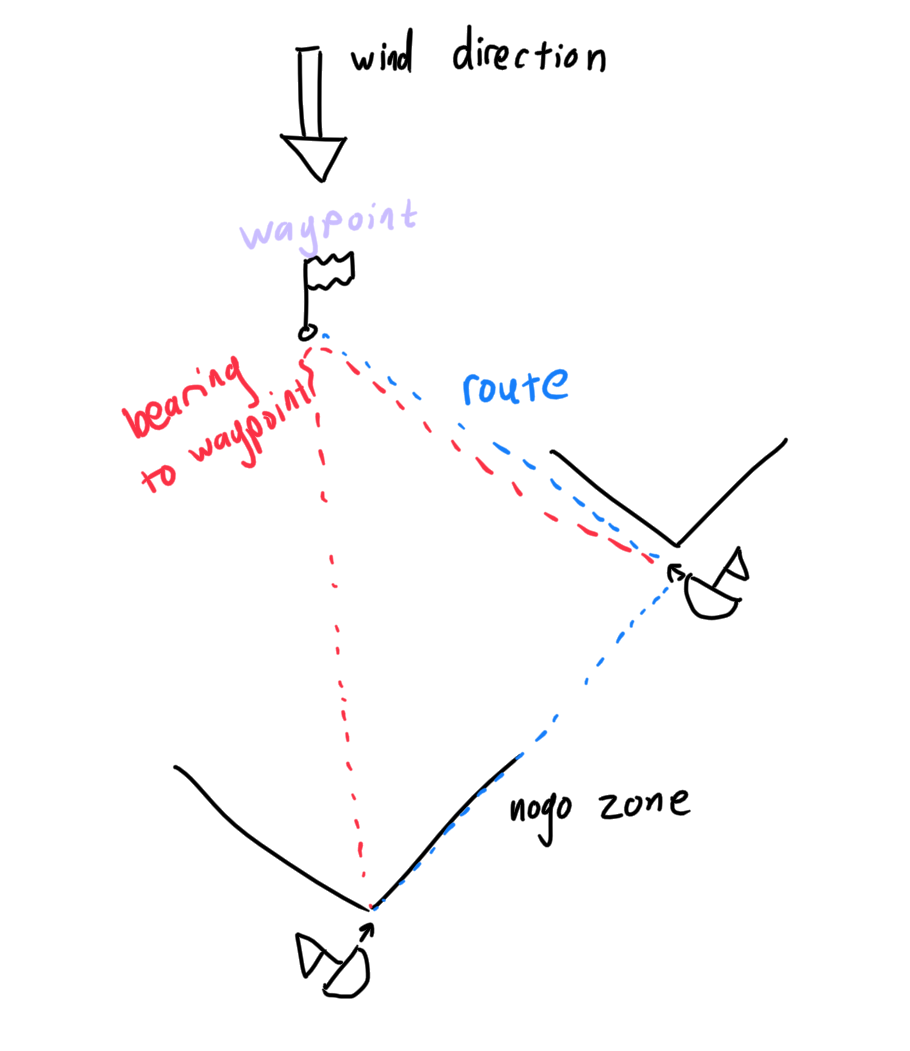 wind direction
waypoint
route
bearing
to waypoint
nogo zone